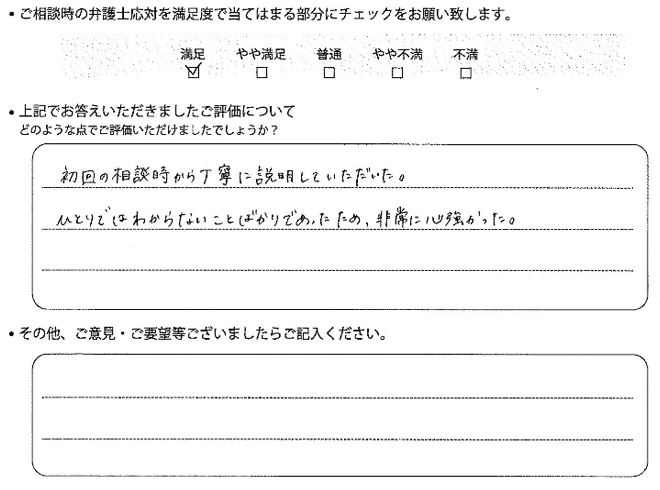 • ご相談時の弁護士応対を満足度で当てはまる部分にチェックをお願い致します。
満足 やや満足 普通 やや不満 不満
☑ □ □ □ □
• 上記でお答えいただきましたご評価について
どのような点でご評価いただけましたでしょうか？
初回の相談時から丁寧に説明していただいた。
ひとりではわからないことばかりであったため、非常に心強かった。
• その他、ご意見・ご要望等ございましたらご記入ください。